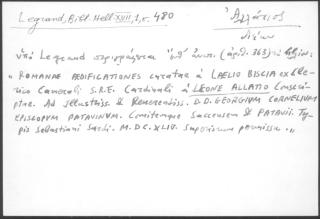 Legrand, Bibl. Hell. XVIII, 1, σ. 480
Ἀλλάτιος
Λέων
ὑπὸ Legrand περιγράφεται ὑπ' ἀριθ. 363
"ROMANAE AEDIFICATIONES curatae a LAELIO BISCIA ex Cle-
rico Camerali S.R.E. Cardinali a LEONE ALLATIO Conscri-
ptae. Ad Illustriss. & Reverendiss. D.D. GEORGIUM CORNELIUM
EPISCOPUM PATAVINUM. Comitemque Saccensem &. PATAVII. Ty-
pis Sebastiani Sardi. M.DC.XLIV. Superiorum permissu."